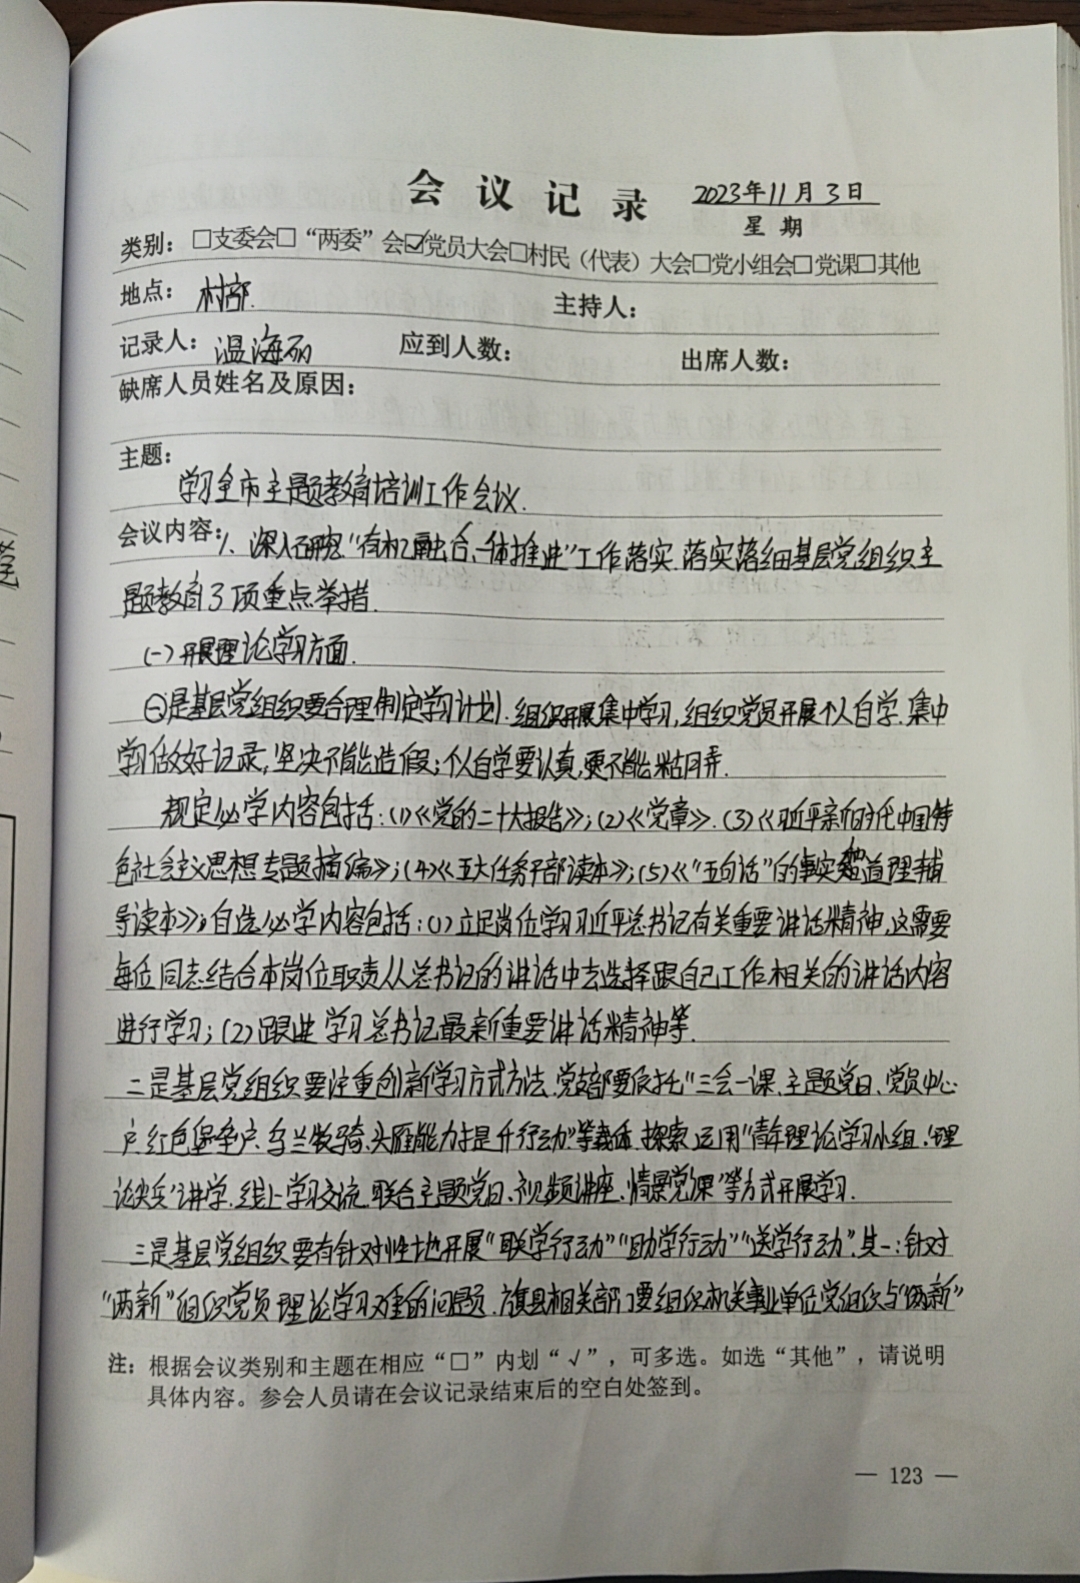 会议记录 2023年11月3日
星期
类别：□支委会□“两委”会☑党员大会□村民（代表）大会□党小组会□党课□其他
地点：村部. 主持人：
记录人：温海丽 应到人数： 出席人数：
缺席人员姓名及原因：
主题：
学习全市主题教育培训工作会议.
会议内容：1、深入研究“有机融合、一体推进”工作落实.落实落细基层党组织主
题教育3项重点举措.
(一)开展理论学习方面.
㊀是基层党组织要合理制定学习计划.组织开展集中学习,组织党员开展个人自学.集中
学习做好记录,坚决不能造假;个人自学要认真,更不能糊弄.
规定必学内容包括:(1)《党的二十大报告》;(2)《党章》.(3)《习近平新时代中国特
色社会主义思想专题摘编》;(4)《五大任务干部读本》;(5)《“五句话”的事实和道理辅
导读本》;自选必学内容包括:(1)立足岗位学习习近平总书记有关重要讲话精神,这需要
每位同志结合本岗位职责从总书记的讲话中去选择跟自己工作相关的讲话内容
进行学习;(2)跟进学习总书记最新重要讲话精神等.
二是基层党组织要注重创新学习方式方法.党支部要依托“三会一课、主题党日、党员中心
户、红色堡垒户、乌兰牧骑、头雁能力提升行动”等载体.探索运用“青年理论学习小组、‘理
论尖兵’讲学、线上学习交流、联合主题党日、视频讲座、情景党课”等方式开展学习.
三是基层党组织要有针对性地开展“联学行动”“助学行动”“送学行动”.其一:针对
“两新”组织党员理论学习难的问题.旗县相关部门要组织机关事业单位党组织与“两新”
注：根据会议类别和主题在相应“□”内划“√”，可多选。如选“其他”，请说明
具体内容。参会人员请在会议记录结束后的空白处签到。
— 123 —